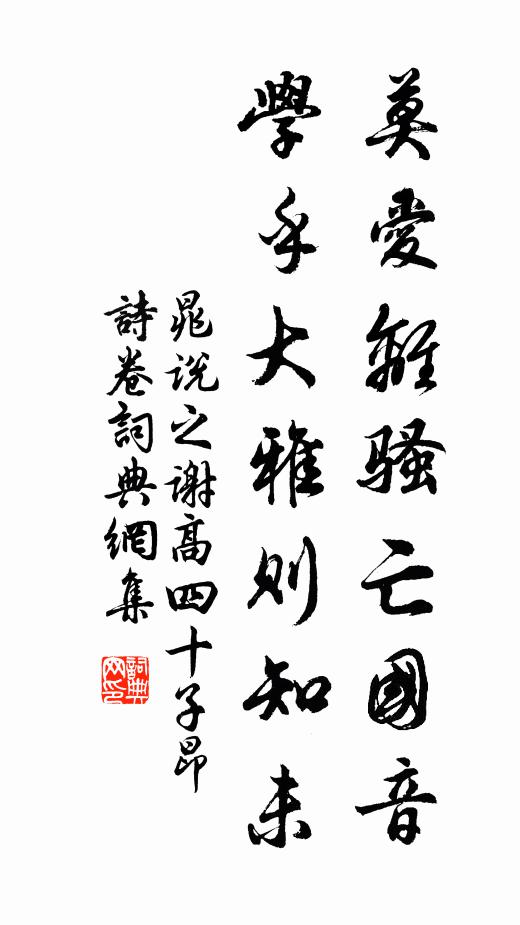 莫愛離騷亡國音
學乎大雅則知未
晁說之謝高四十子昂
詩卷詞典網集
詞典网印